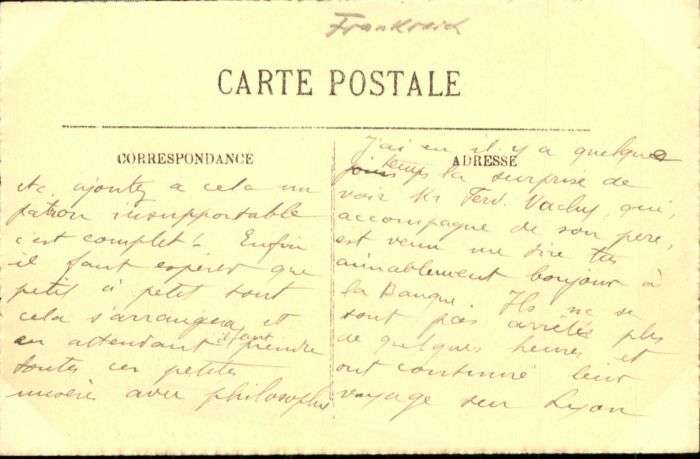 Frankreich
CARTE POSTALE
CORRESPONDANCE
etc, ajoutez a cela un
patron insupportable
c'est complet! Enfin
il faut espérer que
petit à petit tout
cela s'arrangera et
en attendant il faut prendre
toutes ces petites
misères avec philosophie
ADRESSE
J'ai eu il y a quelque
temps la surprise de
voir Mr Ferd. Vachy, qui,
accompagné de son père,
est venu me dire très
aimablement bonjour à
la Banque. Ils ne se
sont pas arrêtés plus
de quelques heures et
ont continué leur
voyage sur Lyon